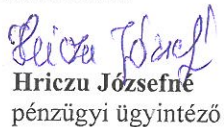 Hriczu Józsefné
Hriczu Józsefné
pénzügyi ügyintéző